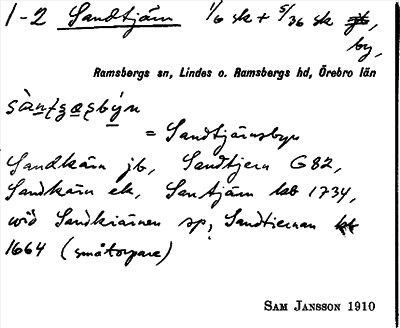 1-2 Sandtjärn 1/6 sk + 5/36 sk
by,
Ramsbergs sn, Lindes o. Ramsbergs hd, Örebro län
= Sandtjärnsbyn
Sandkärn jb, Sandtjern G82,
Sandkärn ek, Santjärn kb 1734,
wid Sandkiärnen sp, Sandtiernan
1664 (småtorpare)
SAM JANSSON 1910